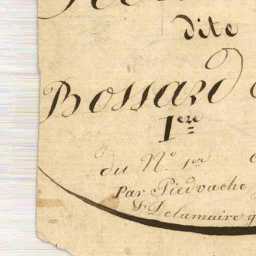 dite
Bossard
1ere
du N° 1er
Par Piedvache
F. Delamaire